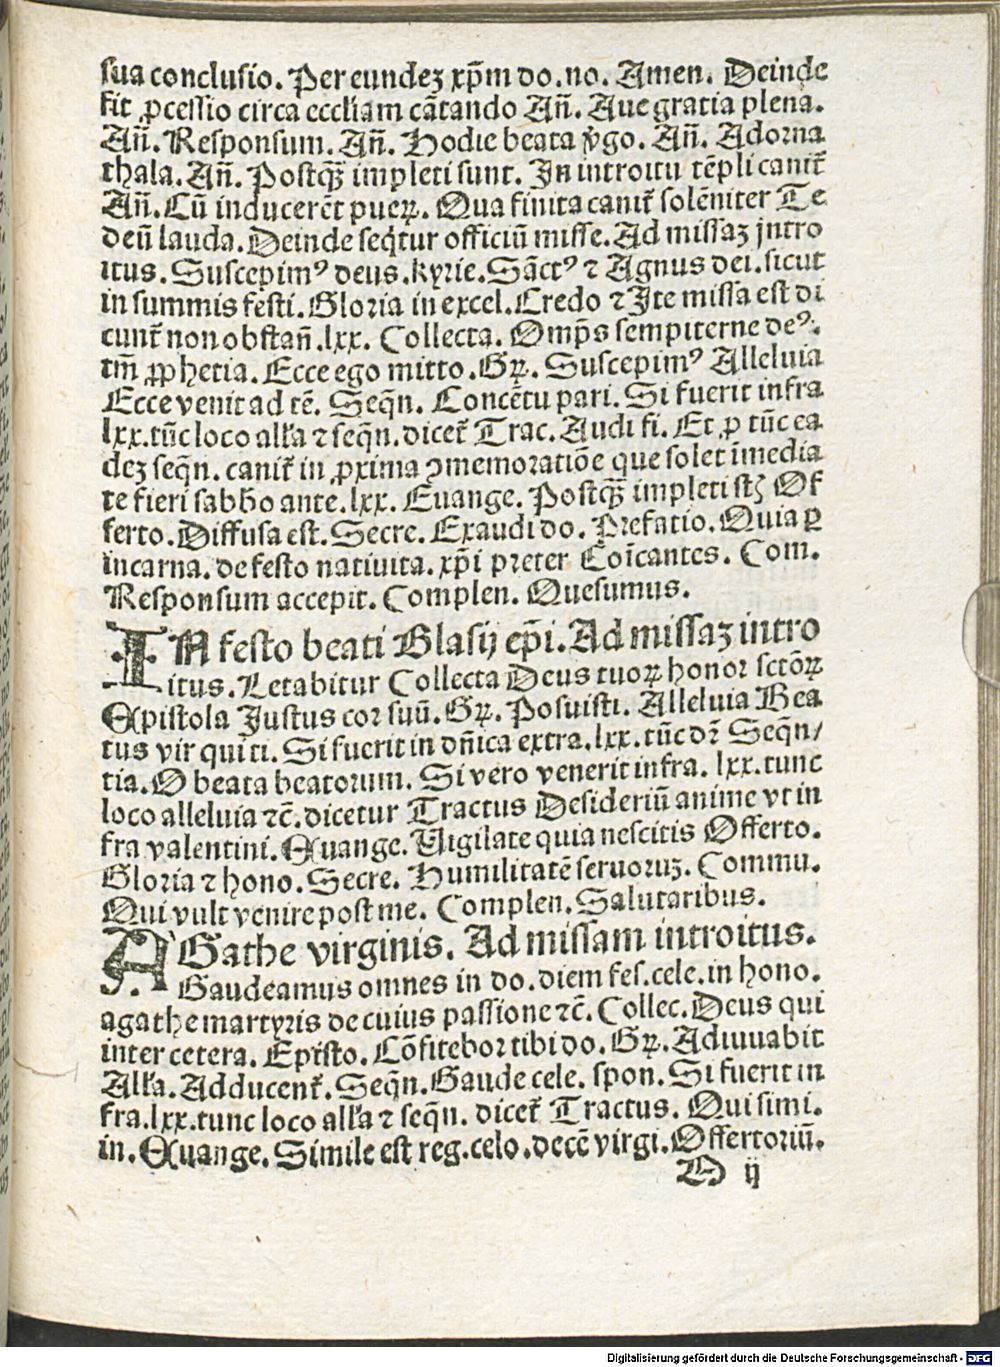 sua conclusio. Per eundeʒ xp̄m do. no. Amen. Deinde
fit ꝓcessio circa eccl'iam cātando Añ. Aue gratia plena.
Añ. Responsum. Añ. Hodie beata v̓go. Añ. Adorna
thala. Añ. Postqȝ̄ impleti sunt. In introitu tēpli canit᷑
Añ. Cū inducerēt pueꝝ. Qua finita canit᷑ solēniter Te
deū lauda. Deinde seq̄tur officiū misse. Ad missaʒ jntro
itus. Suscepimꝰ deus. kyrie. Sāctꝰ ⁊ Agnus dei. sicut
in summis festi. Gloria in excel. Credo ⁊ Ite missa est di
cunt᷑ non obstan̄. lxx. Collecta. Omp̄s sempiterne deꝰ.
tm̄ ꝓphetia. Ecce ego mitto. Gꝝ. Suscepimꝰ Alleluia
Ecce venit ad tē. Seq̄n. Concētu pari. Si fuerit infra
lxx. tūc loco all'a ⁊ seq̄n. dicet᷑ Trac. Audi fi. Et ꝓ tūc ea
deʒ seq̄n. canit᷑ in ꝓxima ꝯmemoratiōe que solet īmedia
te fieri sabb̄o ante. lxx. Euange. Postqȝ̄ impleti st̄ʒ Of
ferto. Diffusa est. Secre. Exaudi do. Prefatio. Quia ꝑ
incarna. de festo natiuita. xp̄i preter Coīcantes. Com.
Responsum accepit. Complen. Quesumus.
IN festo beati Blasij ep̄i. Ad missaʒ intro
itus. Letabitur Collecta Deus tuoꝝ honor sctōꝝ
Epistola Justus cor suū. Gꝝ. Posuisti. Alleluia Bea
tus vir qui ti. Si fuerit in dn̄ica extra. lxx. tūc dr̄ Seq̄n/
tia. O beata beatorum. Si vero venerit infra. lxx. tunc
loco alleluia ⁊c̄. dicetur Tractus Desideriū anime vt in
fra valentini. Euange. Uigilate quia nescitis Offerto.
Gloria ⁊ hono. Secre. Humilitatē seruoruʒ. Commu.
Qui vult venire post me. Complen. Salutaribus.
AGathe virginis. Ad missam introitus.
Gaudeamus omnes in do. diem fes. cele. in hono.
agathe martyris de cuius passione ⁊c̄. Collec. Deus qui
inter cetera. Episto. Cōfitebor tibi do. Gꝝ. Adiuuabit
All'a. Adducent᷑. Seq̄n. Gaude cele. spon. Si fuerit in
fra. lxx. tunc loco all'a ⁊ seq̄n. dicet᷑ Tractus. Qui simi.
in. Euange. Simile est reg. celo. decē virgi. Offertoriū.
D ij
Digitalisierung gefördert durch die Deutsche Forschungsgemeinschaft - DFG